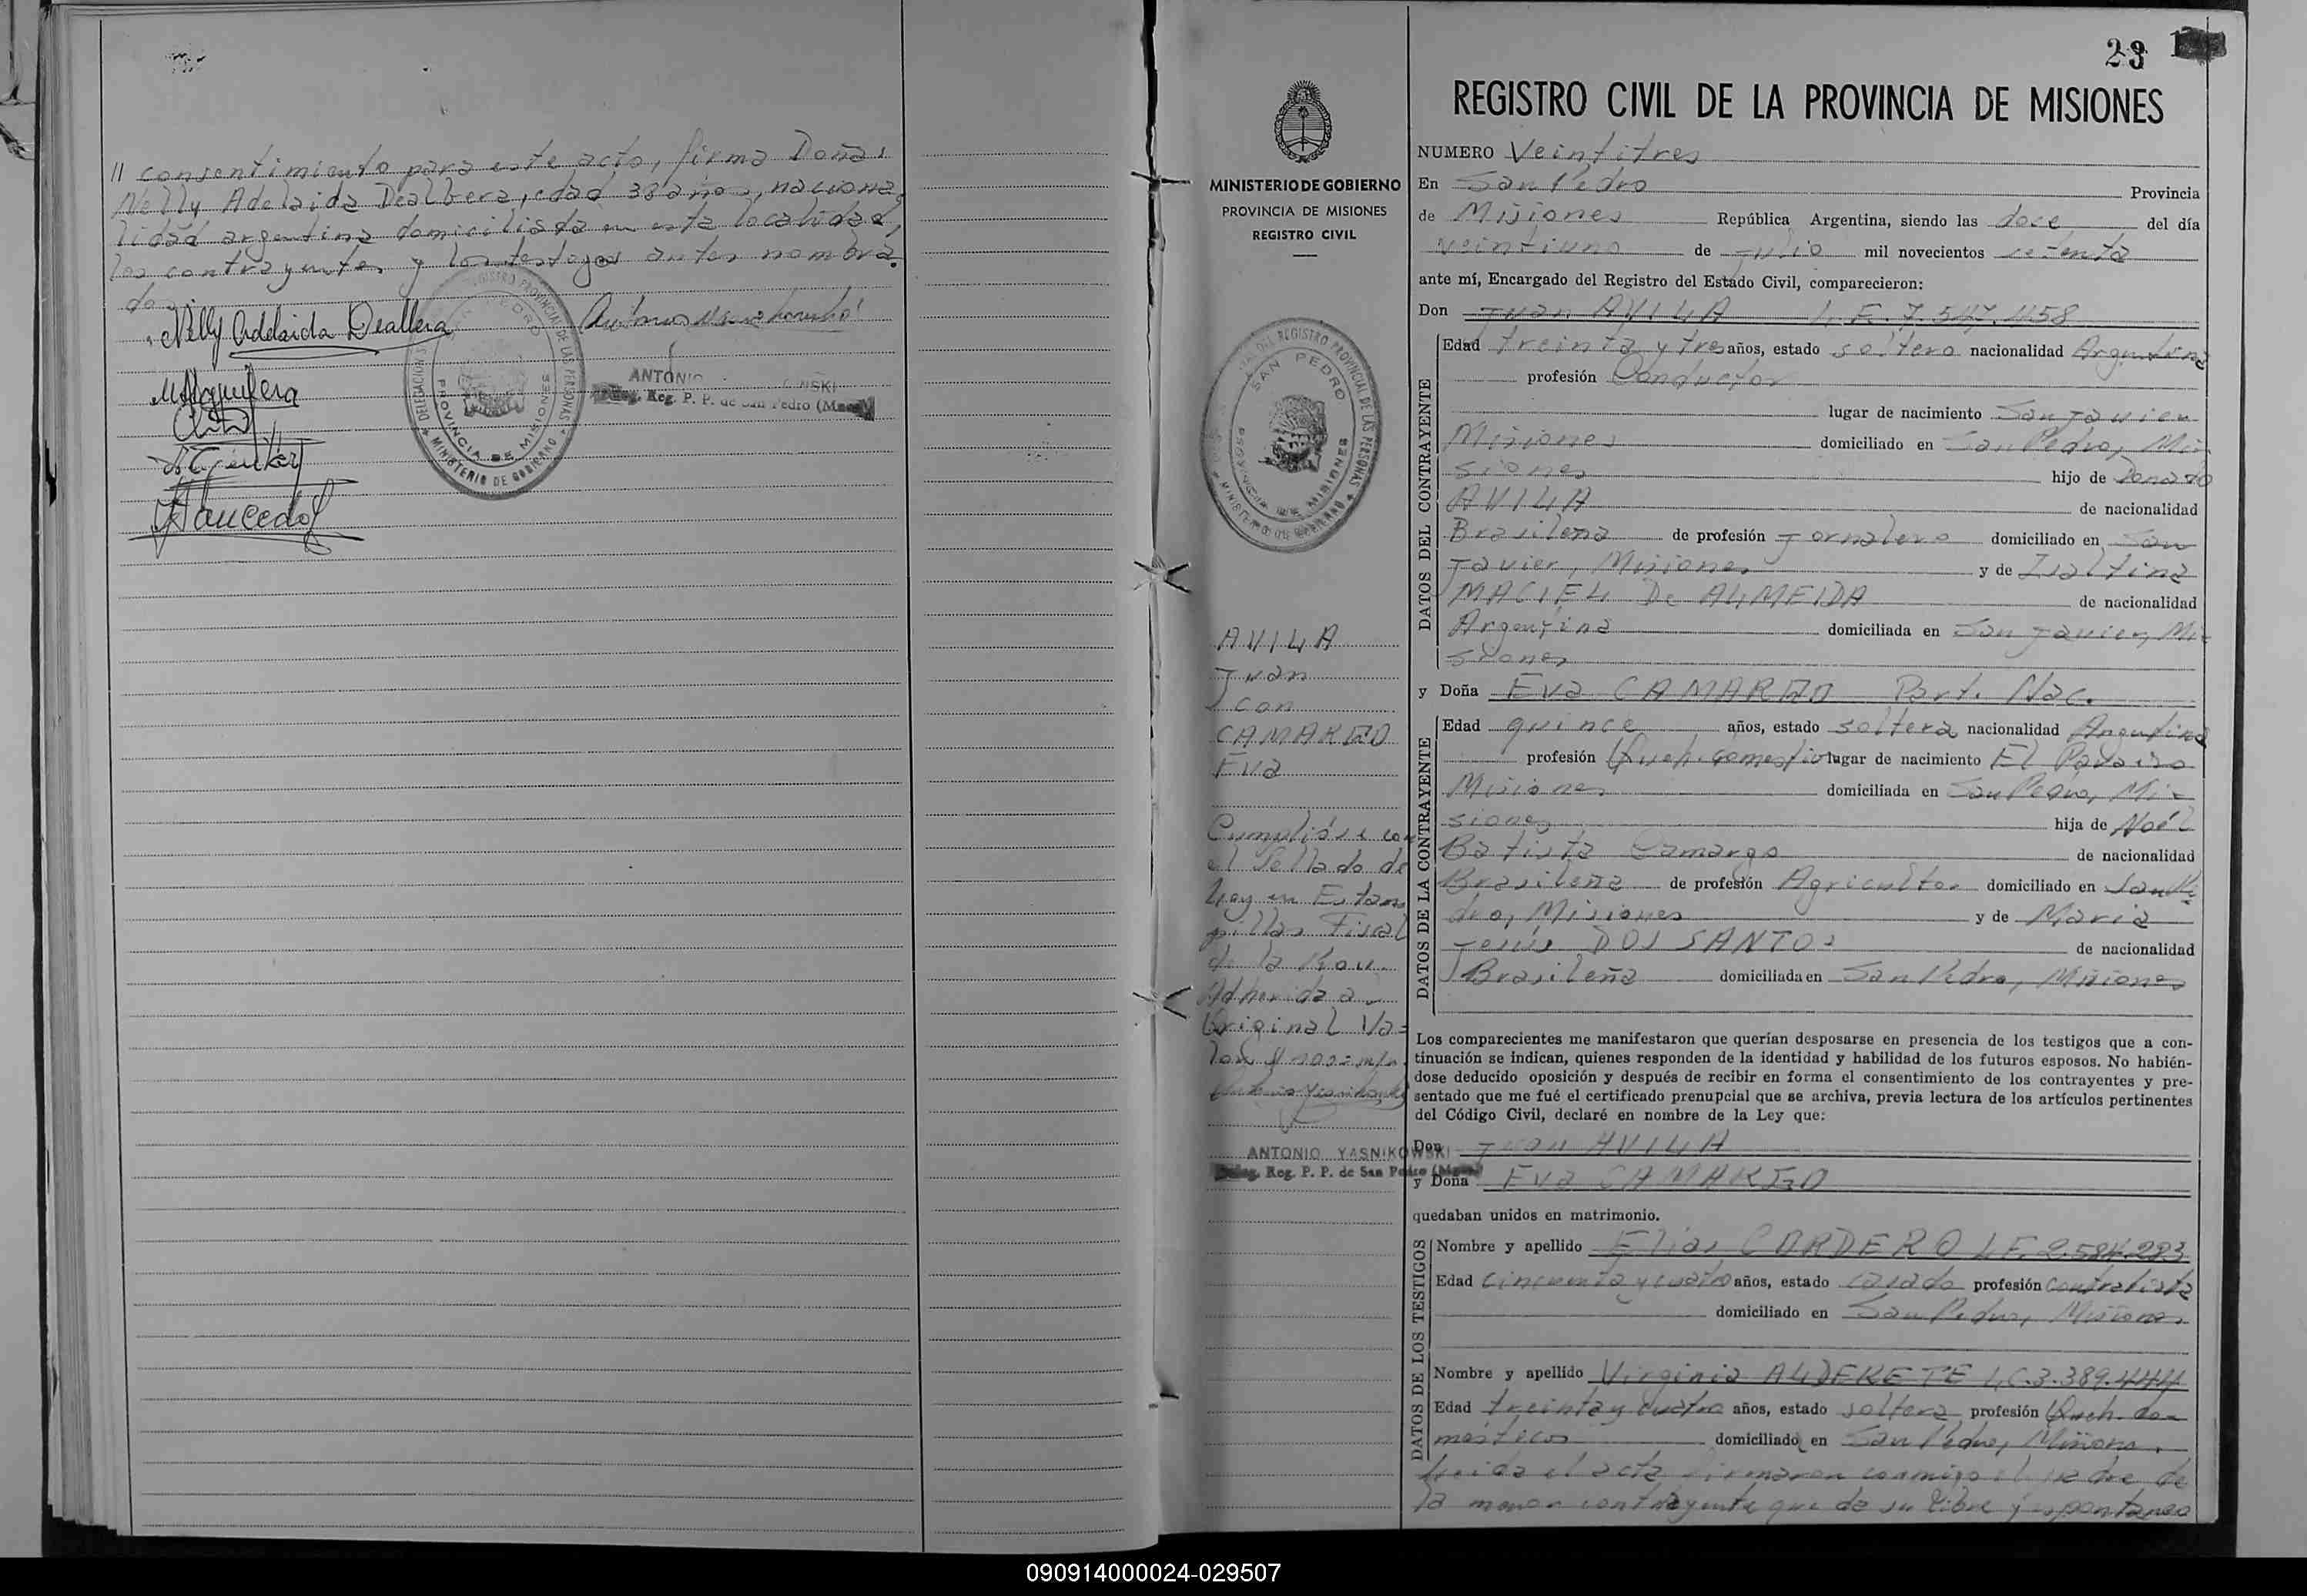 // consentimiento para este acto, firma Doña:
Nelly Adelaida Dealbera, edad 38 años, naciona-
lidad argentina domiciliada en esta localidad,
los contrayentes y los testigos antes nombra-
dos
Nelly Adelaida Deallera
ANTONIO
Reg. P. P. de San Pedro
DELEGACION
REGISTRO PROVINCIAL DE LAS PERSONAS
PROVINCIA DE MISIONES
MINISTERIO DE GOBIERNO
23
MINISTERIO DE GOBIERNO
PROVINCIA DE MISIONES
REGISTRO CIVIL
REGISTRO PROVINCIAL DE LAS PERSONAS
SAN PEDRO
MINISTERIO DE GOBIERNO
AVILA
Juan
con
CAMARGO
Eva
Cumplióse con
el Sellado de
Ley en Estam
pillas Fiscal
de la
Adherida a
Original Va-
lor
ANTONIO YASNIKOWSKI
Deleg. Reg. P. P. de San Pedro (Mnes)
REGISTRO CIVIL DE LA PROVINCIA DE MISIONES
NUMERO Veintitres
En San Pedro Provincia
de Misiones República Argentina, siendo las doce del día
veintiuno de Julio mil novecientos setenta
ante mí, Encargado del Registro del Estado Civil, comparecieron:
Don Juan AVILA L.E. 7.547.458
DATOS DEL CONTRAYENTE
Edad treinta y tres años, estado soltero nacionalidad Argentina
profesión Conductor
lugar de nacimiento San Javier
Misiones domiciliado en San Pedro, Mi-
siones hijo de Donato
AVILA de nacionalidad
Brasileña de profesión Jornalero domiciliado en San
Javier, Misiones y de Isaltina
MACIEL De ALMEIDA de nacionalidad
Argentina domiciliada en San Javier, Mi-
siones
y Doña Eva CAMARGO Part. Nac.
DATOS DE LA CONTRAYENTE
Edad quince años, estado soltera nacionalidad Argentina
profesión Queh. domestico lugar de nacimiento El Paraiso
Misiones domiciliada en San Pedro, Mi-
siones hija de Noél
Batista Camargo de nacionalidad
Brasileña de profesión Agricultor domiciliado en San Pe-
dro, Misiones y de Maria
Jesús DOS SANTOS de nacionalidad
Brasileña domiciliada en San Pedro, Misiones
Los comparecientes me manifestaron que querían desposarse en presencia de los testigos que a con-
tinuación se indican, quienes responden de la identidad y habilidad de los futuros esposos. No habién-
dose deducido oposición y después de recibir en forma el consentimiento de los contrayentes y pre-
sentado que me fué el certificado prenupcial que se archiva, previa lectura de los artículos pertinentes
del Código Civil, declaré en nombre de la Ley que:
Don Juan AVILA
y Doña Eva CAMARGO
quedaban unidos en matrimonio.
DATOS DE LOS TESTIGOS
Nombre y apellido Elias CORDERO L.E. 2.584.283
Edad cincuenta y cuatro años, estado casado profesión contratista
domiciliado en San Pedro, Misiones
Nombre y apellido Virginia ALDERETE L.C. 3.389.444
Edad treinta y cuatro años, estado soltera profesión Queh. do-
mesticos domiciliado en San Pedro, Misiones.
Leida el acta firmaron conmigo el padre de
la menor contrayente que da su libre y espontaneo
090914000024-029507